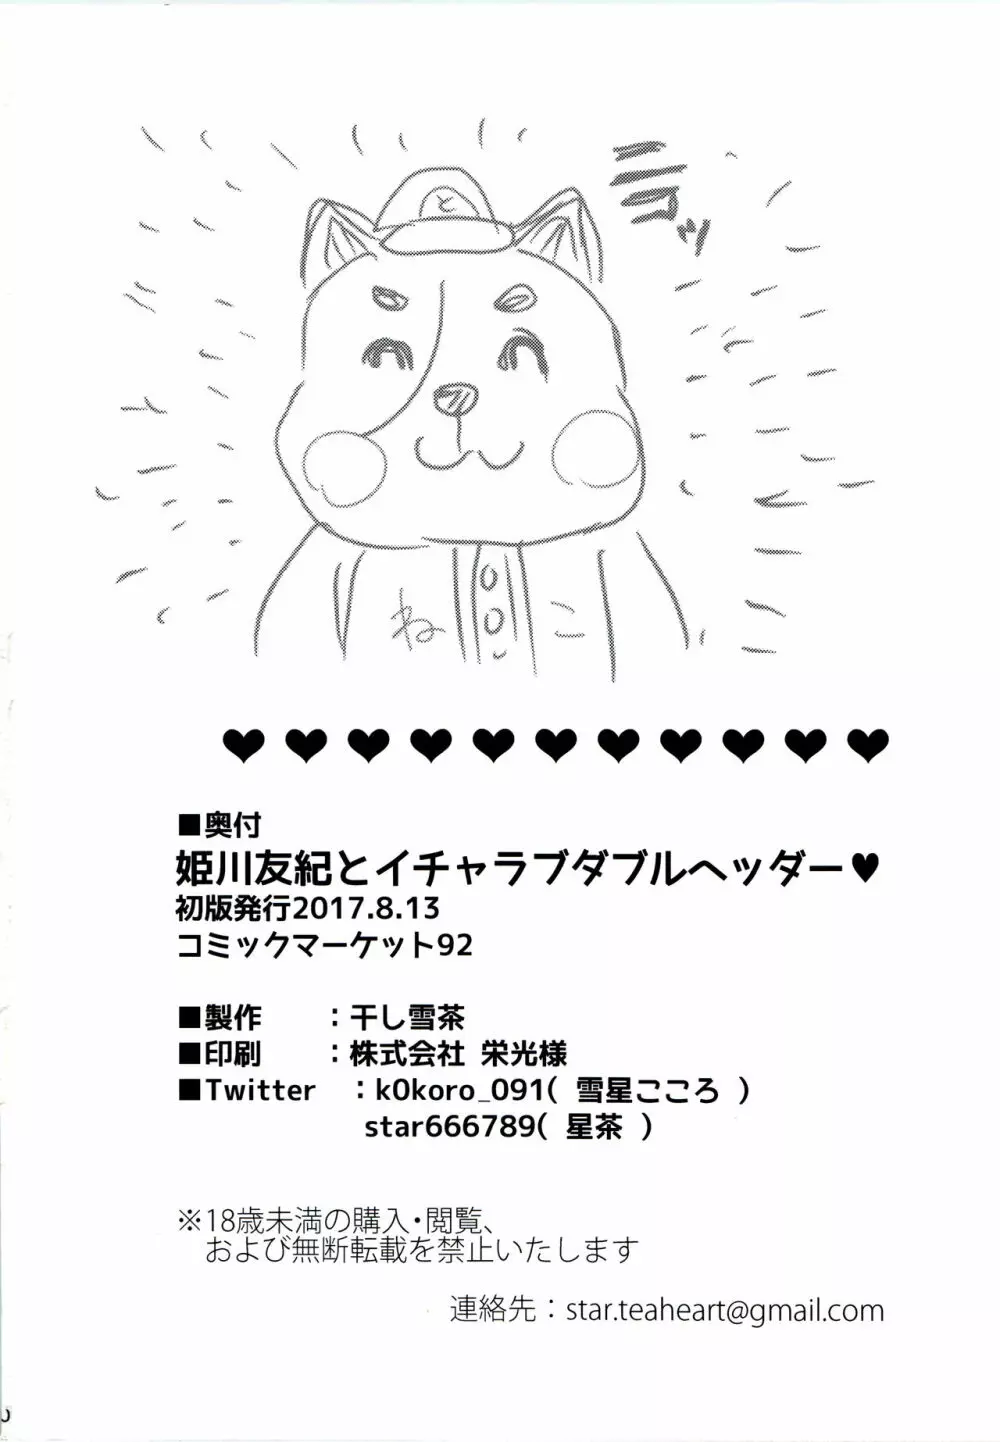 と
ニコッ
ねこ
■奥付
姫川友紀とイチャラブダブルヘッダー♥
初版発行2017.8.13
コミックマーケット92
■製作　　：干し雪茶
■印刷　　：株式会社 栄光様
■Twitter　：k0koro_091( 雪星こころ )
star666789( 星茶 )
※18歳未満の購入・閲覧、
および無断転載を禁止いたします
連絡先：star.teaheart@gmail.com